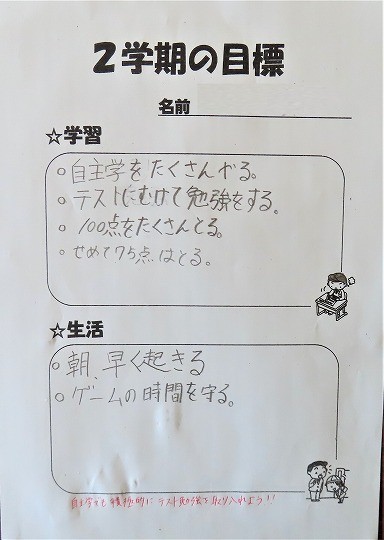 2学期の目標
名前
☆学習
○自主学をたくさんやる。
○テストにむけて勉強をする。
○100点をたくさんとる。
○せめて75点はとる。
☆生活
○朝、早く起きる
○ゲームの時間を守る。
自主学でも積極的にテスト勉強を取り入れよう!!